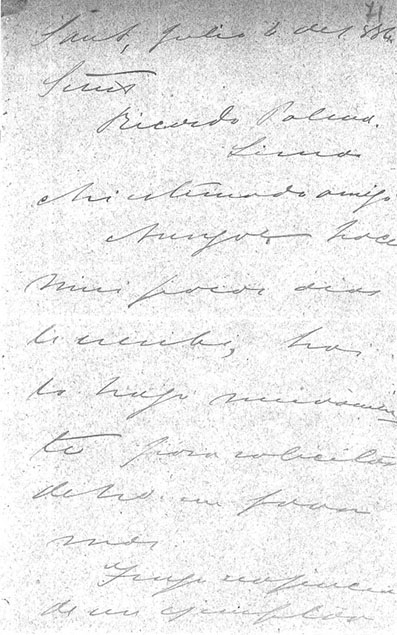 Sant, Julio 6 de 1886.
Señor
Ricardo Palma.
Lima
Mi estimado amigo
Aunque hace
mui pocos dias
le escribi, hoi
lo hago nuevamen
te para solicitar
de Ud. un favor
mas.
Tengo urjencia
de un ejemplar